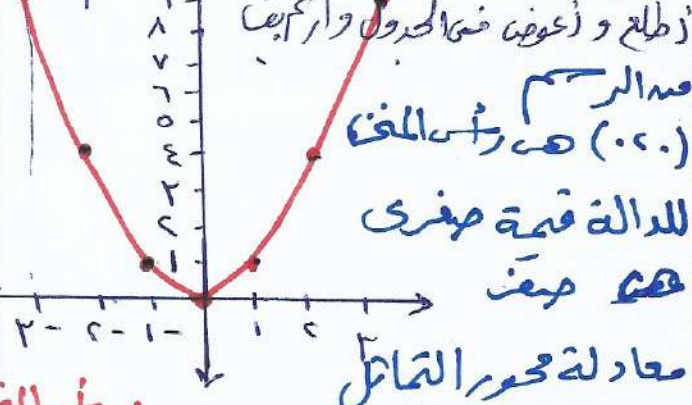 أطلع و أعوض في الجدول وأرسم
من الرسم
(٠،٠) هى رأس المنحنى
للدالة قيمة صغرى
هى صفر
معادلة محور التماثل
٨
٧
٦
٥
٤
٣
٢
١
٣- ٢- ١- ١ ٢ ٣